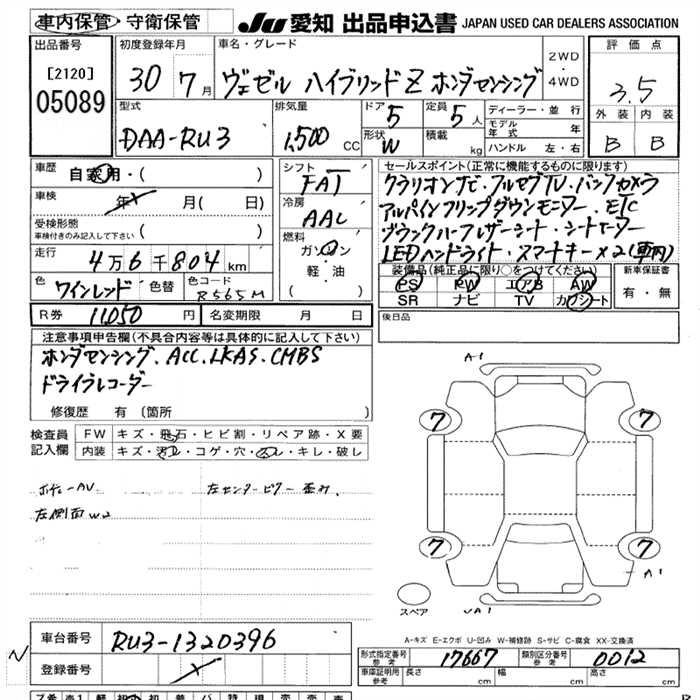 車内保管・守衛保管
JU 愛知 出品申込書 JAPAN USED CAR DEALERS ASSOCIATION
出品番号
[2120]
05089
初度登録年月
30 7月
車名・グレード
ヴェゼル ハイブリッドZ ホンダセンシング
2WD
・
4WD
評価点
3.5
外装 内装
B B
型式
DAA-RU3
排気量
1,500 CC
ドア 5
形状 W
定員 5人
積載 kg
ディーラー・並行
モデル年式 年
ハンドル 左・右
車歴 自家用・( )
車検 年 X 月( 日)
受検形態
車検付きのみ記入して下さい ( )
走行 4万6千804km
色 ワインレッド 色替 色コード R565M
シフト
FAT
冷房
AAC
燃料
ガソリン
・
軽・油
( )
セールスポイント(正常に機能するものに限ります)
クラリオンナビ・フルセグTV・バックカメラ
アルパインフリップダウンモニター・ETC
ブラックハーフレザーシート・シートヒーター
LEDヘッドライト・スマートキー×2(車内)
装備品(純正品に限り○をつけてください)
PS PW エアB AW
SR ナビ TV カワシート
新車保証書
有・無
R券 11,050円 名変期限 月 日
後日品
注意事項申告欄(不具合内容等は具体的に記入して下さい)
ホンダセンシング、ACC、LKAS、CMBS
ドライブレコーダー
修復歴 有(箇所 )
検査員記入欄
FW キズ・飛石・ヒビ割・リペア跡・X要
内装 キズ・汚レ・コゲ・穴・スレ・キレ・破レ
ボディーAV 左センターピラー歪み、
左側面W2
A1
7 7
7 7
A1
スペア
A1
A-キズ E-エクボ U-凹み W-補修跡 S-サビ C-腐食 XX-交換済
N
車台番号 RU3-1320396
登録番号 X
形式指定番号 参考 17667 類別区分番号 参考 0012
車庫証明用 参考 長さ cm 幅 cm 高さ cm